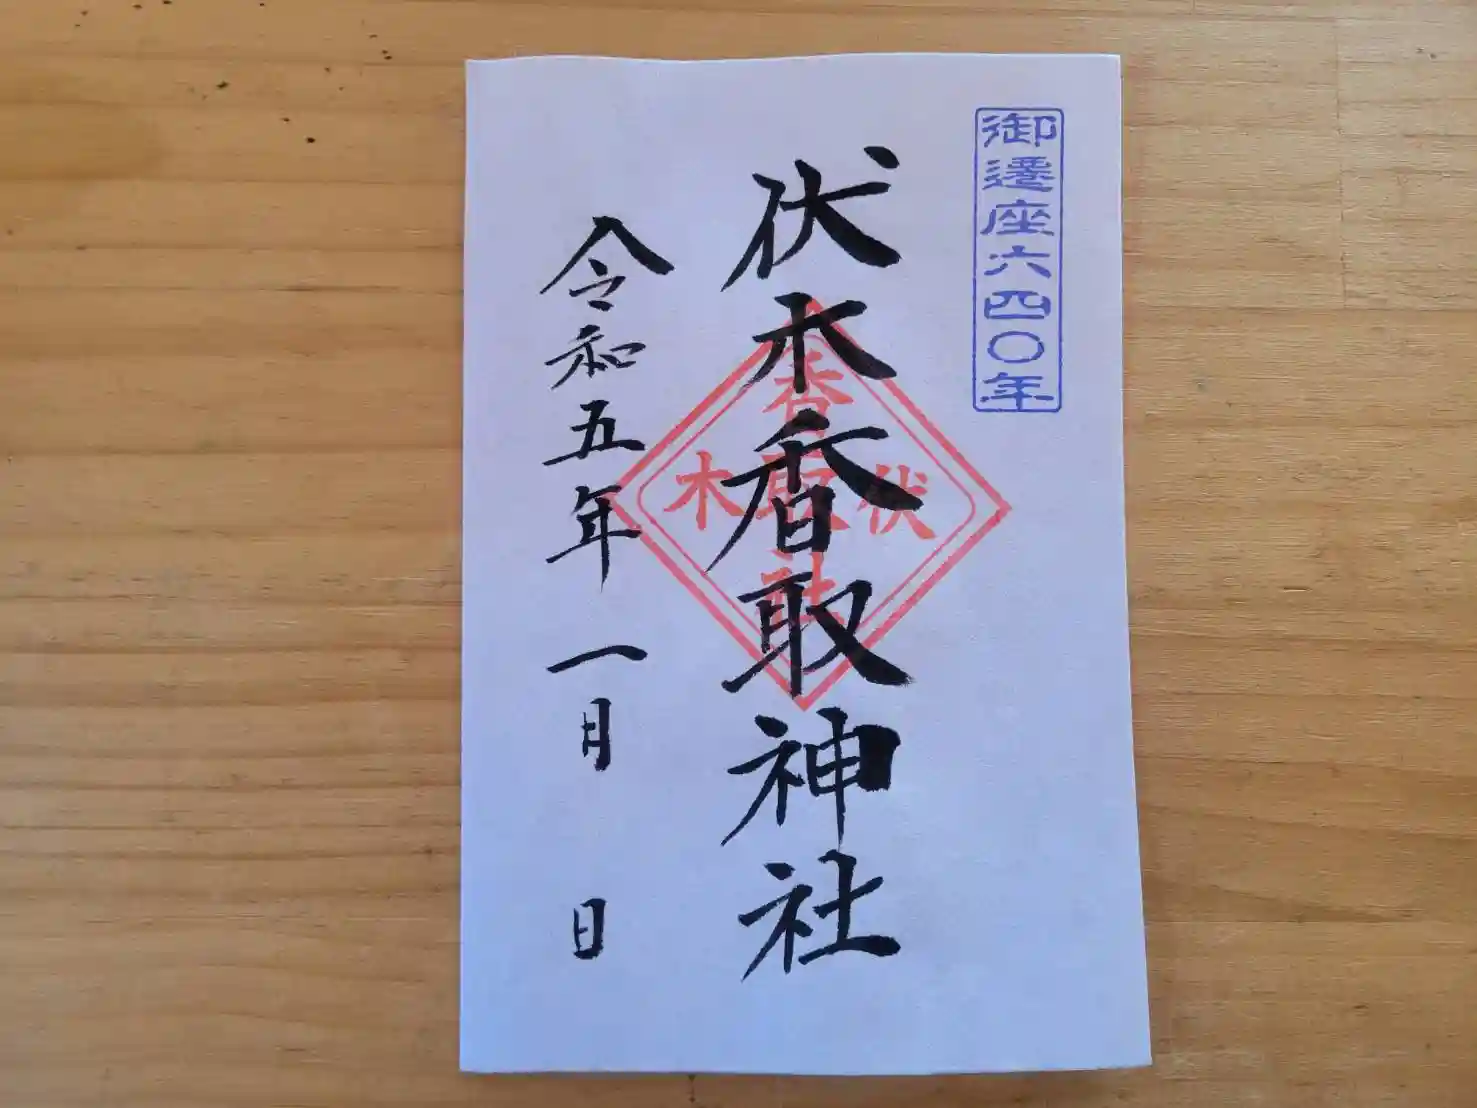 御遷座六四〇年
伏木香取神社
香取社
伏木
令和五年一月 日